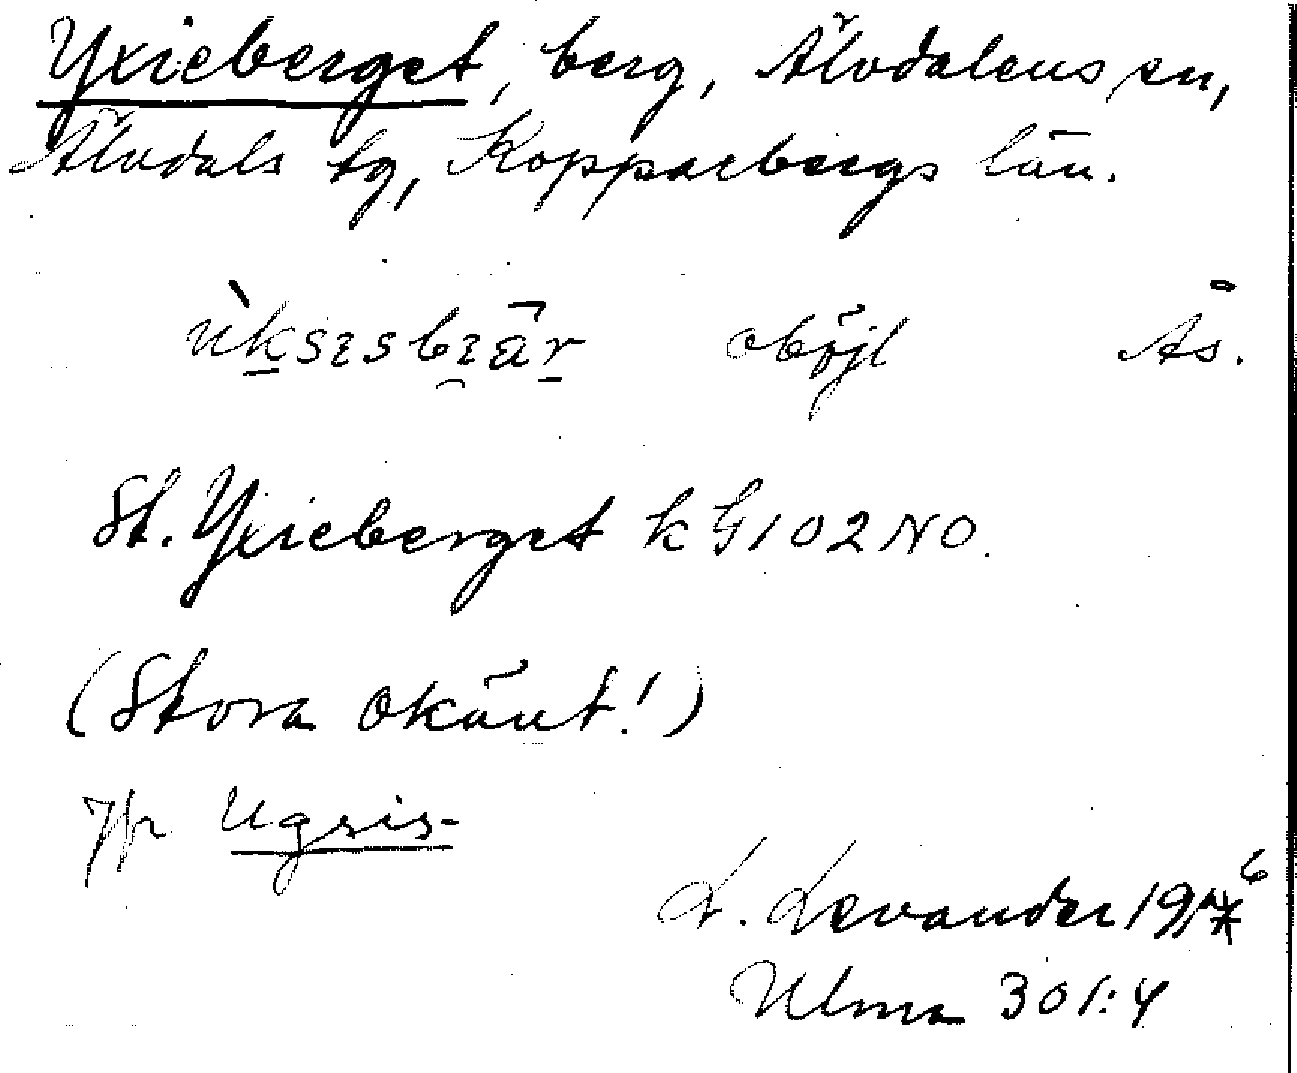 Yxieberget, berg, Älvdalens sn,
Älvdals tg, Kopparbergs län.
ùksɪsbɪ̯ä̀r oböjl Ås.
St. Yxieberget k G 102 NO.
(Stora okänt!)
Jfr Ugsis-
L. Levander 191
Ulma 301:4